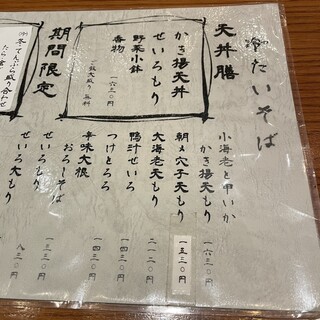 冷たいそば
小海老と甲いか
かき揚天もり
一六三〇円
朝〆穴子天もり
一五三〇円
大海老天もり
二一三〇円
鴨汁せいろ
一四三〇円
つけとろろ
一四三〇円
辛味大根
おろしそば
一三三〇円
せいろもり
せいろ大もり
八三〇円
天丼膳
かき揚天丼
せいろもり
野菜小鉢
香物
一六三〇円
ご飯大盛り 無料
期間限定
冬・てんぷら盛り合わせ